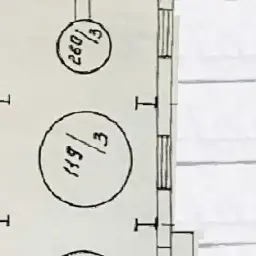 260/3
119/3